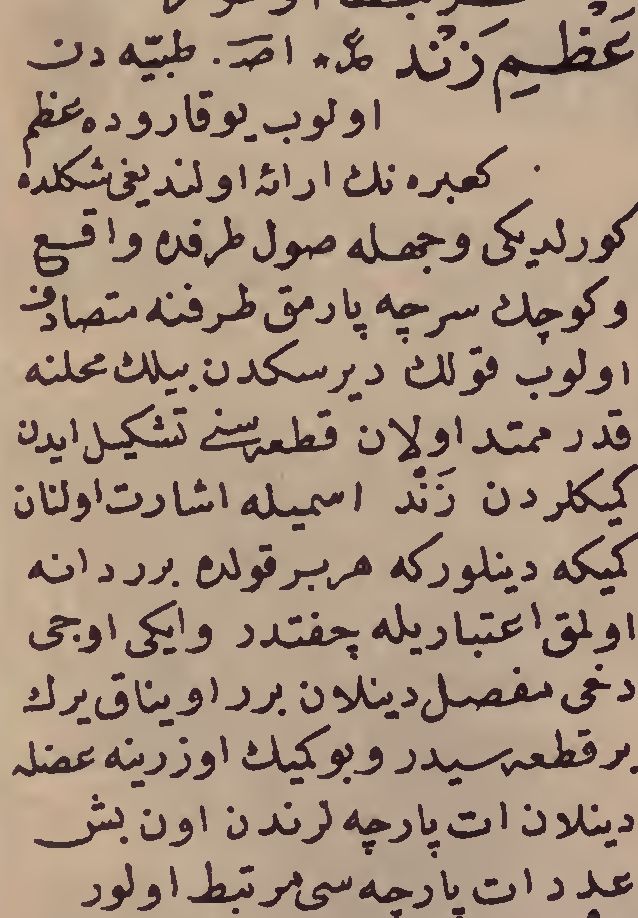 عَظْمِ زَنْد مر* اصـ. طبيّه دن
اولوب يوقاروده عظم
كعبره نك ارائه اولنديغى شكلده
كورلديكى وجهله صول طرفده واقع
وكوچك سرچه پارمق طرفنه متصادف
اولوب قولك ديرسكدن بيلك محلنه
قدر ممتد اولان قطعه سنے تشكيل ايدن
كميكلردن زَنْد اسميله اشارت اولنان
كميكه دينلوركه هربر قولده برر دانه
اولمق اعتباريله چفتدر وايكى اوجى
دخى مفصل دينلان برر اويناق يرك
بر قطعه سيدر وبو كميك اوزرينه عضله
دينلان ات پارچه لرندن اون بش
عدد ات پارچه سى مرتبط اولور